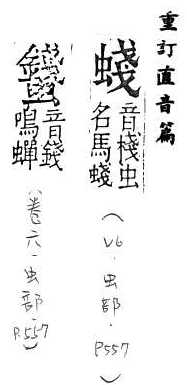 重訂直音篇
蝬音棧虫名馬蝬
（V6．虫部．P557）
音錢鳴蟬
（卷六．虫部．P.557）